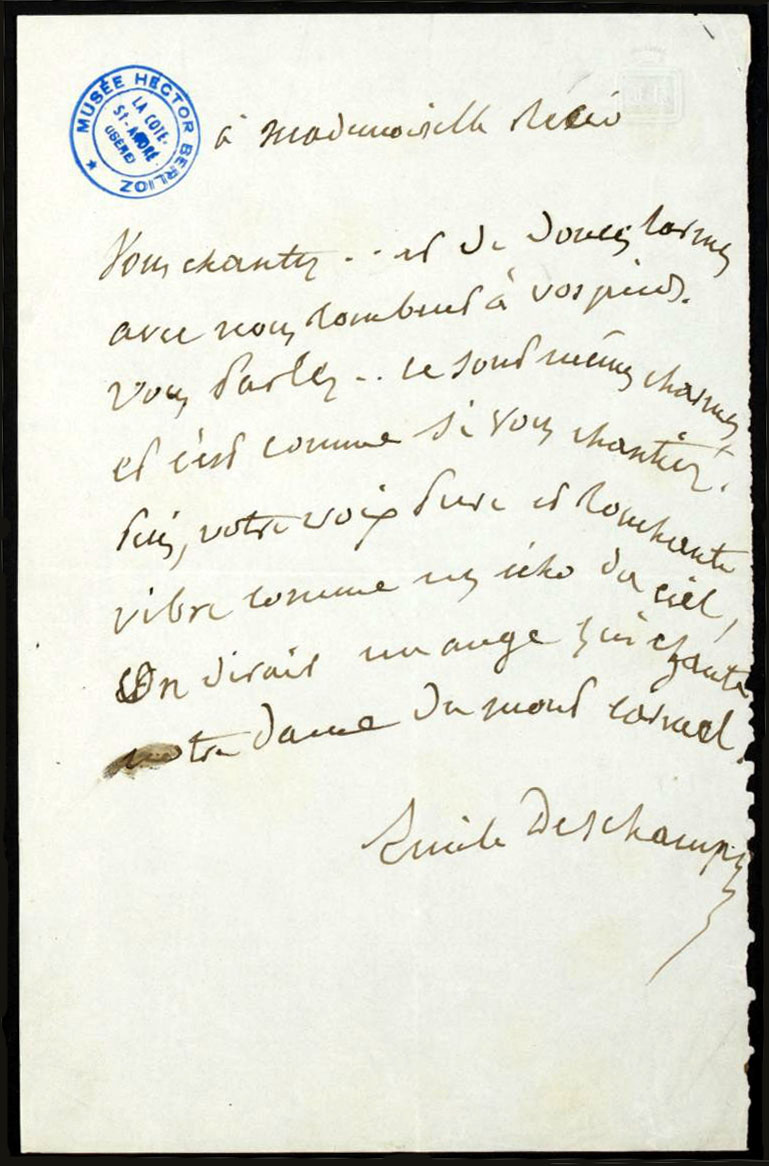 MUSÉE HECTOR BERLIOZ
LA COTE-
St-ANDRÉ
(ISÈRE)
à Mademoiselle Récio
Vous chantez .. et de douces larmes
avec nous tombent à vos pieds.
Vous parlez .. ce sont mêmes charmes
et c'est comme si vous chantiez.
Puis, votre voix pure et touchante
vibre comme un écho du ciel,
On dirait un ange qui chante
notre dame du mont carmel.
Emile Deschamps